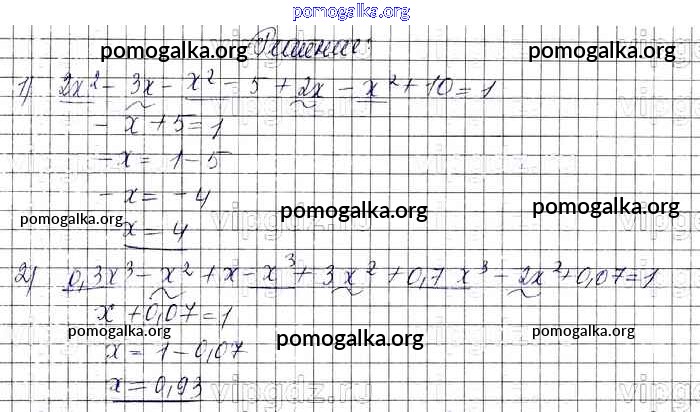 pomogalka.org
Решение:
pomogalka.org pomogalka.org
1) 2x² - 3x - x² - 5 + 2x - x² + 10 = 1
- x + 5 = 1
- x = 1 - 5
- x = - 4
pomogalka.org pomogalka.org pomogalka.org
x = 4
2) 0,3x³ - x² + x - x³ + 3x² + 0,7x³ - 2x² + 0,07 = 1
x + 0,07 = 1
pomogalka.org pomogalka.org pomogalka.org
x = 1 - 0,07
x = 0,93
vipgdz.ru